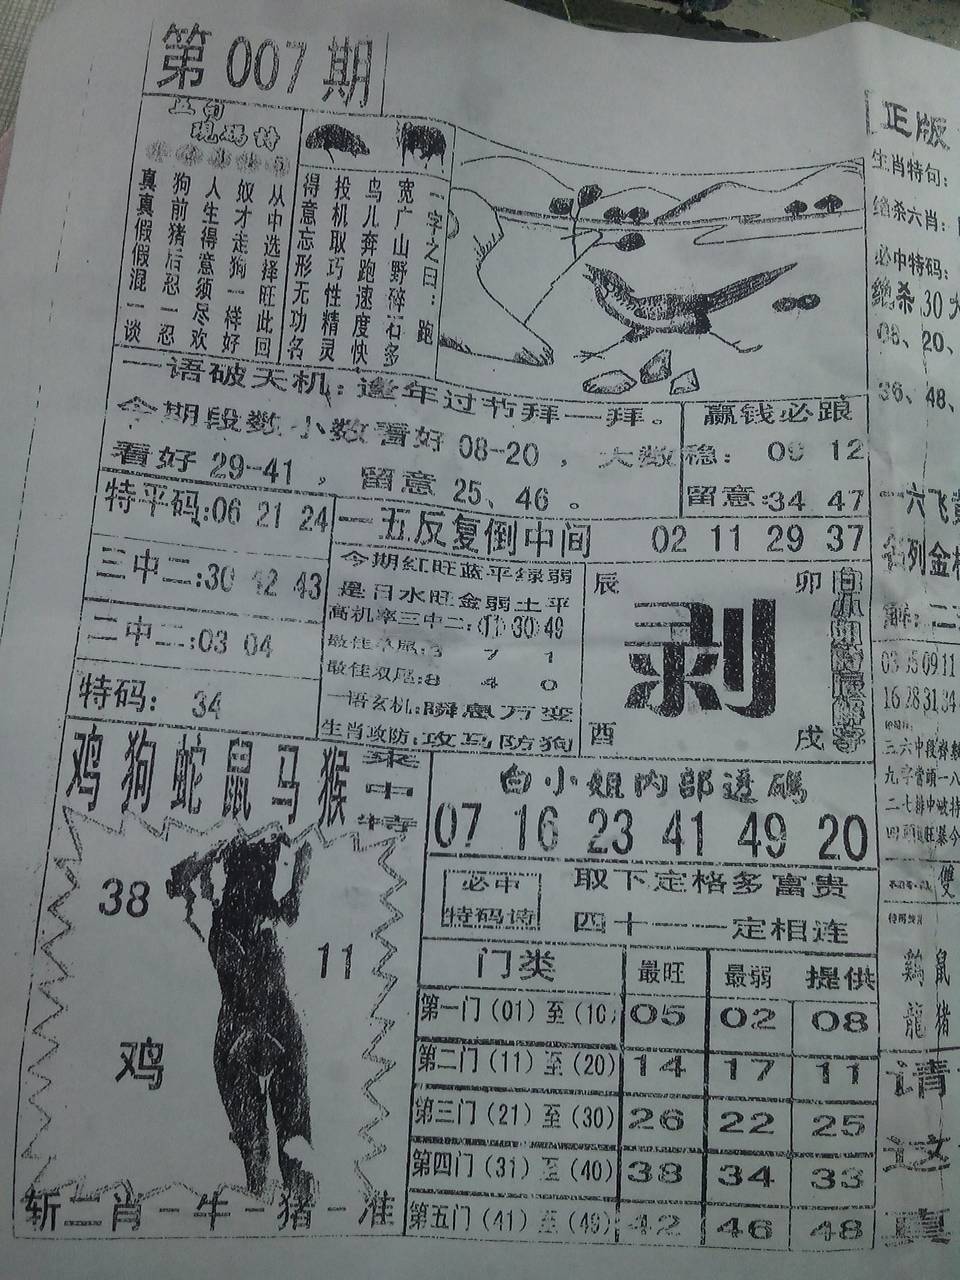 第007期
五句
現碼诗
从中选择旺此回
奴才走狗一样好
人生得意须尽欢
狗前猪后忍一忍
真真假假混一谈
一字之曰：跑
宽广山野碎石多
鸟儿奔跑速度快
投机取巧性精灵
得意忘形无功名
一语破天机：逢年过节拜一拜。
今期段数小数看好08-20，大数
看好29-41，留意25、46。
赢钱必跟
稳：09 12
留意:34 47
特平码:06 21 24
三中二:30 42 43
二中二:03 04
特码：34
一五反复倒中间 02 11 29 37
今期红旺蓝平绿弱
是日水旺金弱土平
高机率三中二:(11)(30)49
最佳单尾:3 7 1
最佳双尾:8 4 0
一语玄机:瞬息万变
生肖攻防:攻马防狗
辰 卯
剥
酉 戌
鸡狗蛇鼠马猴
来中特
38
11
鸡
斩二肖一牛一猪一准
白小姐内部送码
07 16 23 41 49 20
必中
特码诗
取下定格多富贵
四十一一定相连
门类 最旺 最弱 提供
第一门（01）至（10） 05 02 08
第二门（11）至（20） 14 17 11
第三门（21）至（30） 26 22 25
第四门（31）至（40） 38 34 33
第五门（41）至（49） 42 46 48
正版
生肖特句：
绝杀六肖：
必中特码：
绝杀 30
08、20、
36、48、
一六飞
列金
03 05 09 11
16 28 31 34
三六中段
九字當頭一八
二七排中破特
雙
鷄鼠
龍猪
请
这
真